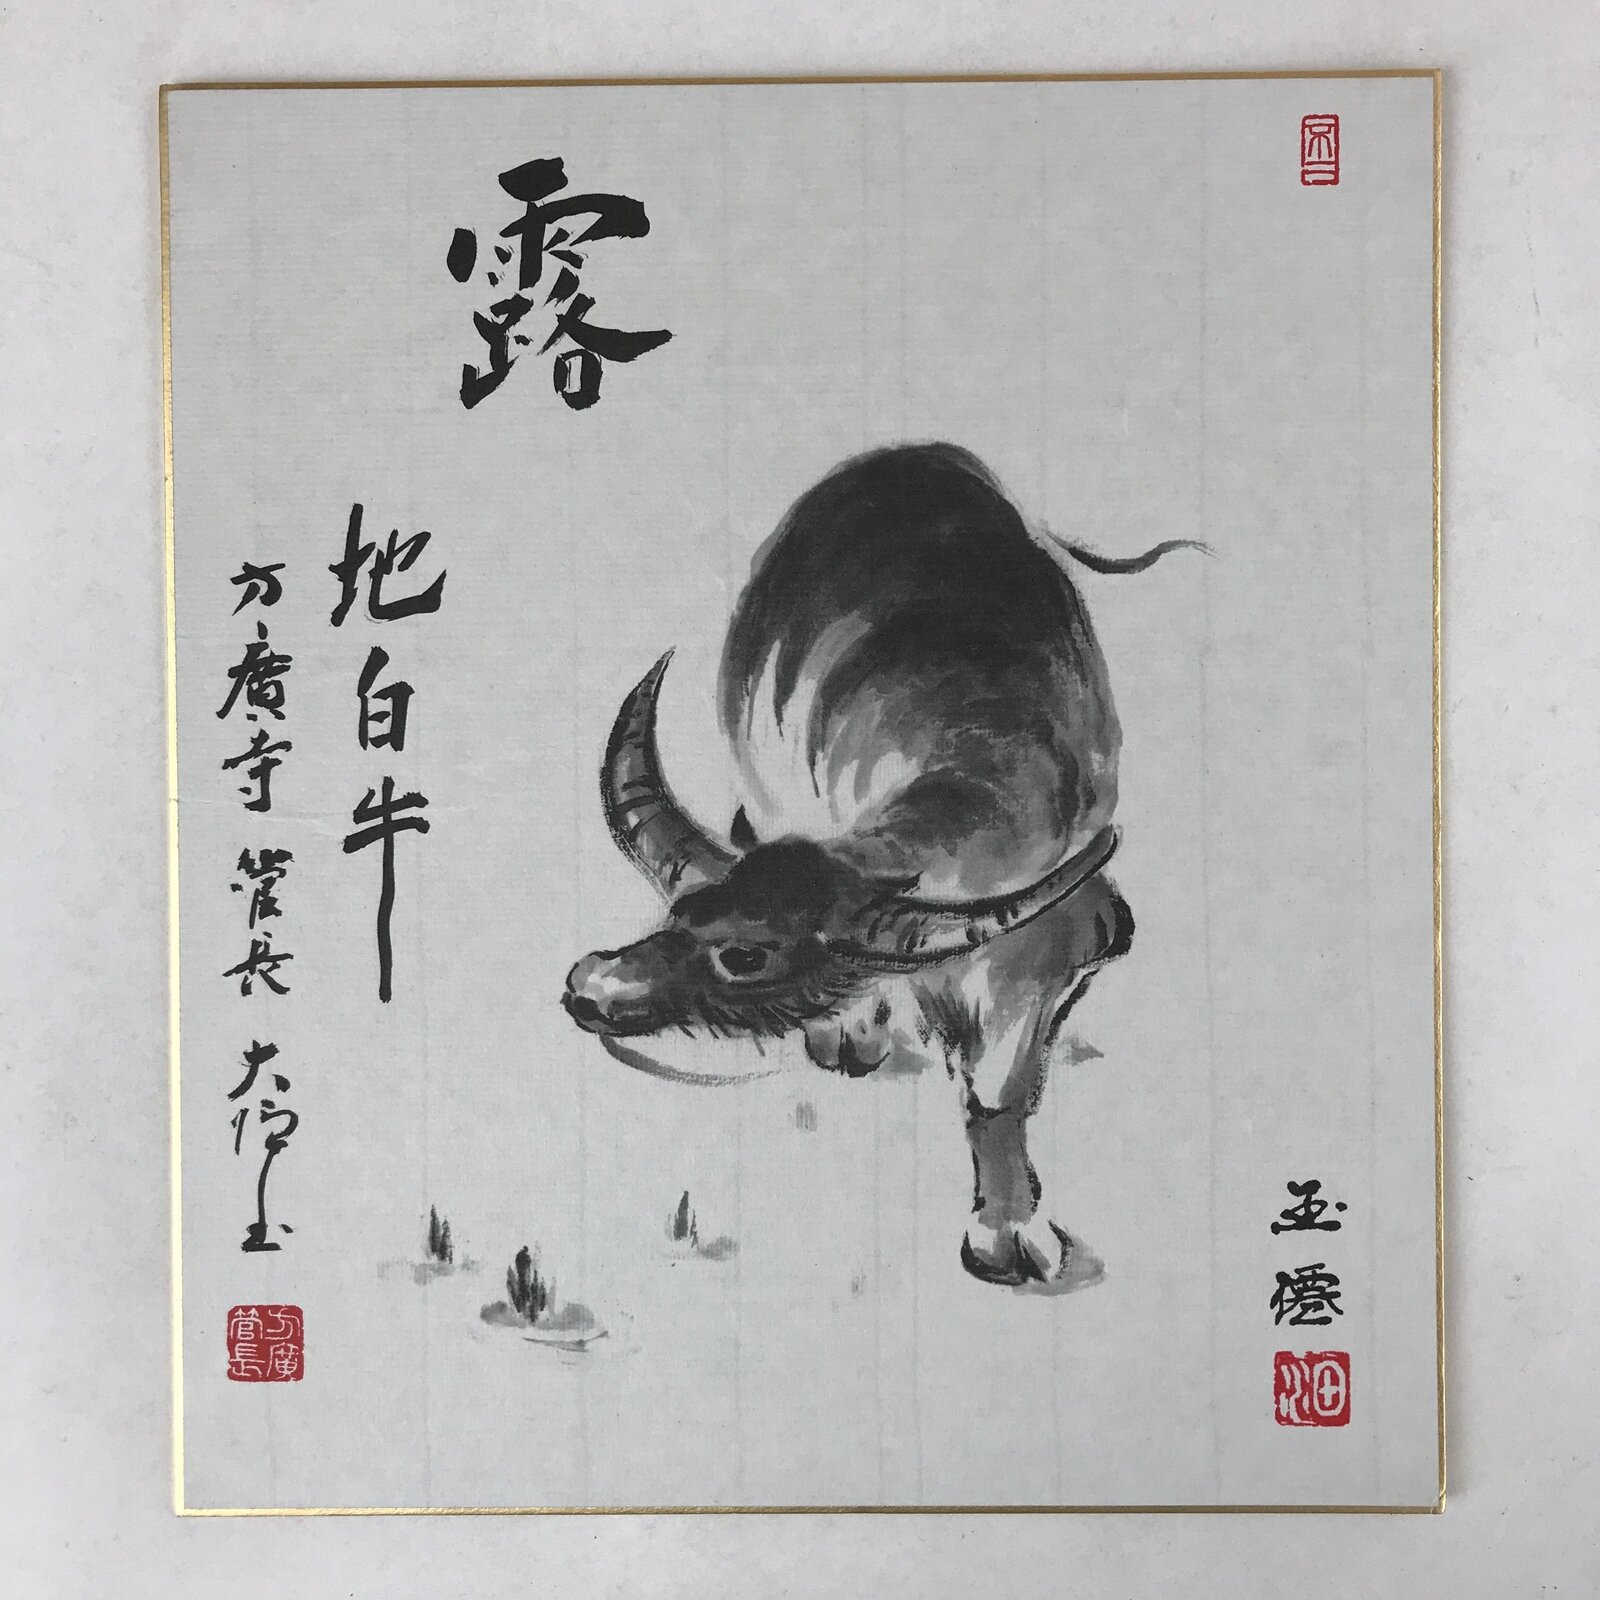 露
地白牛
方廣寺 管長 大
玉僊
方廣
管長